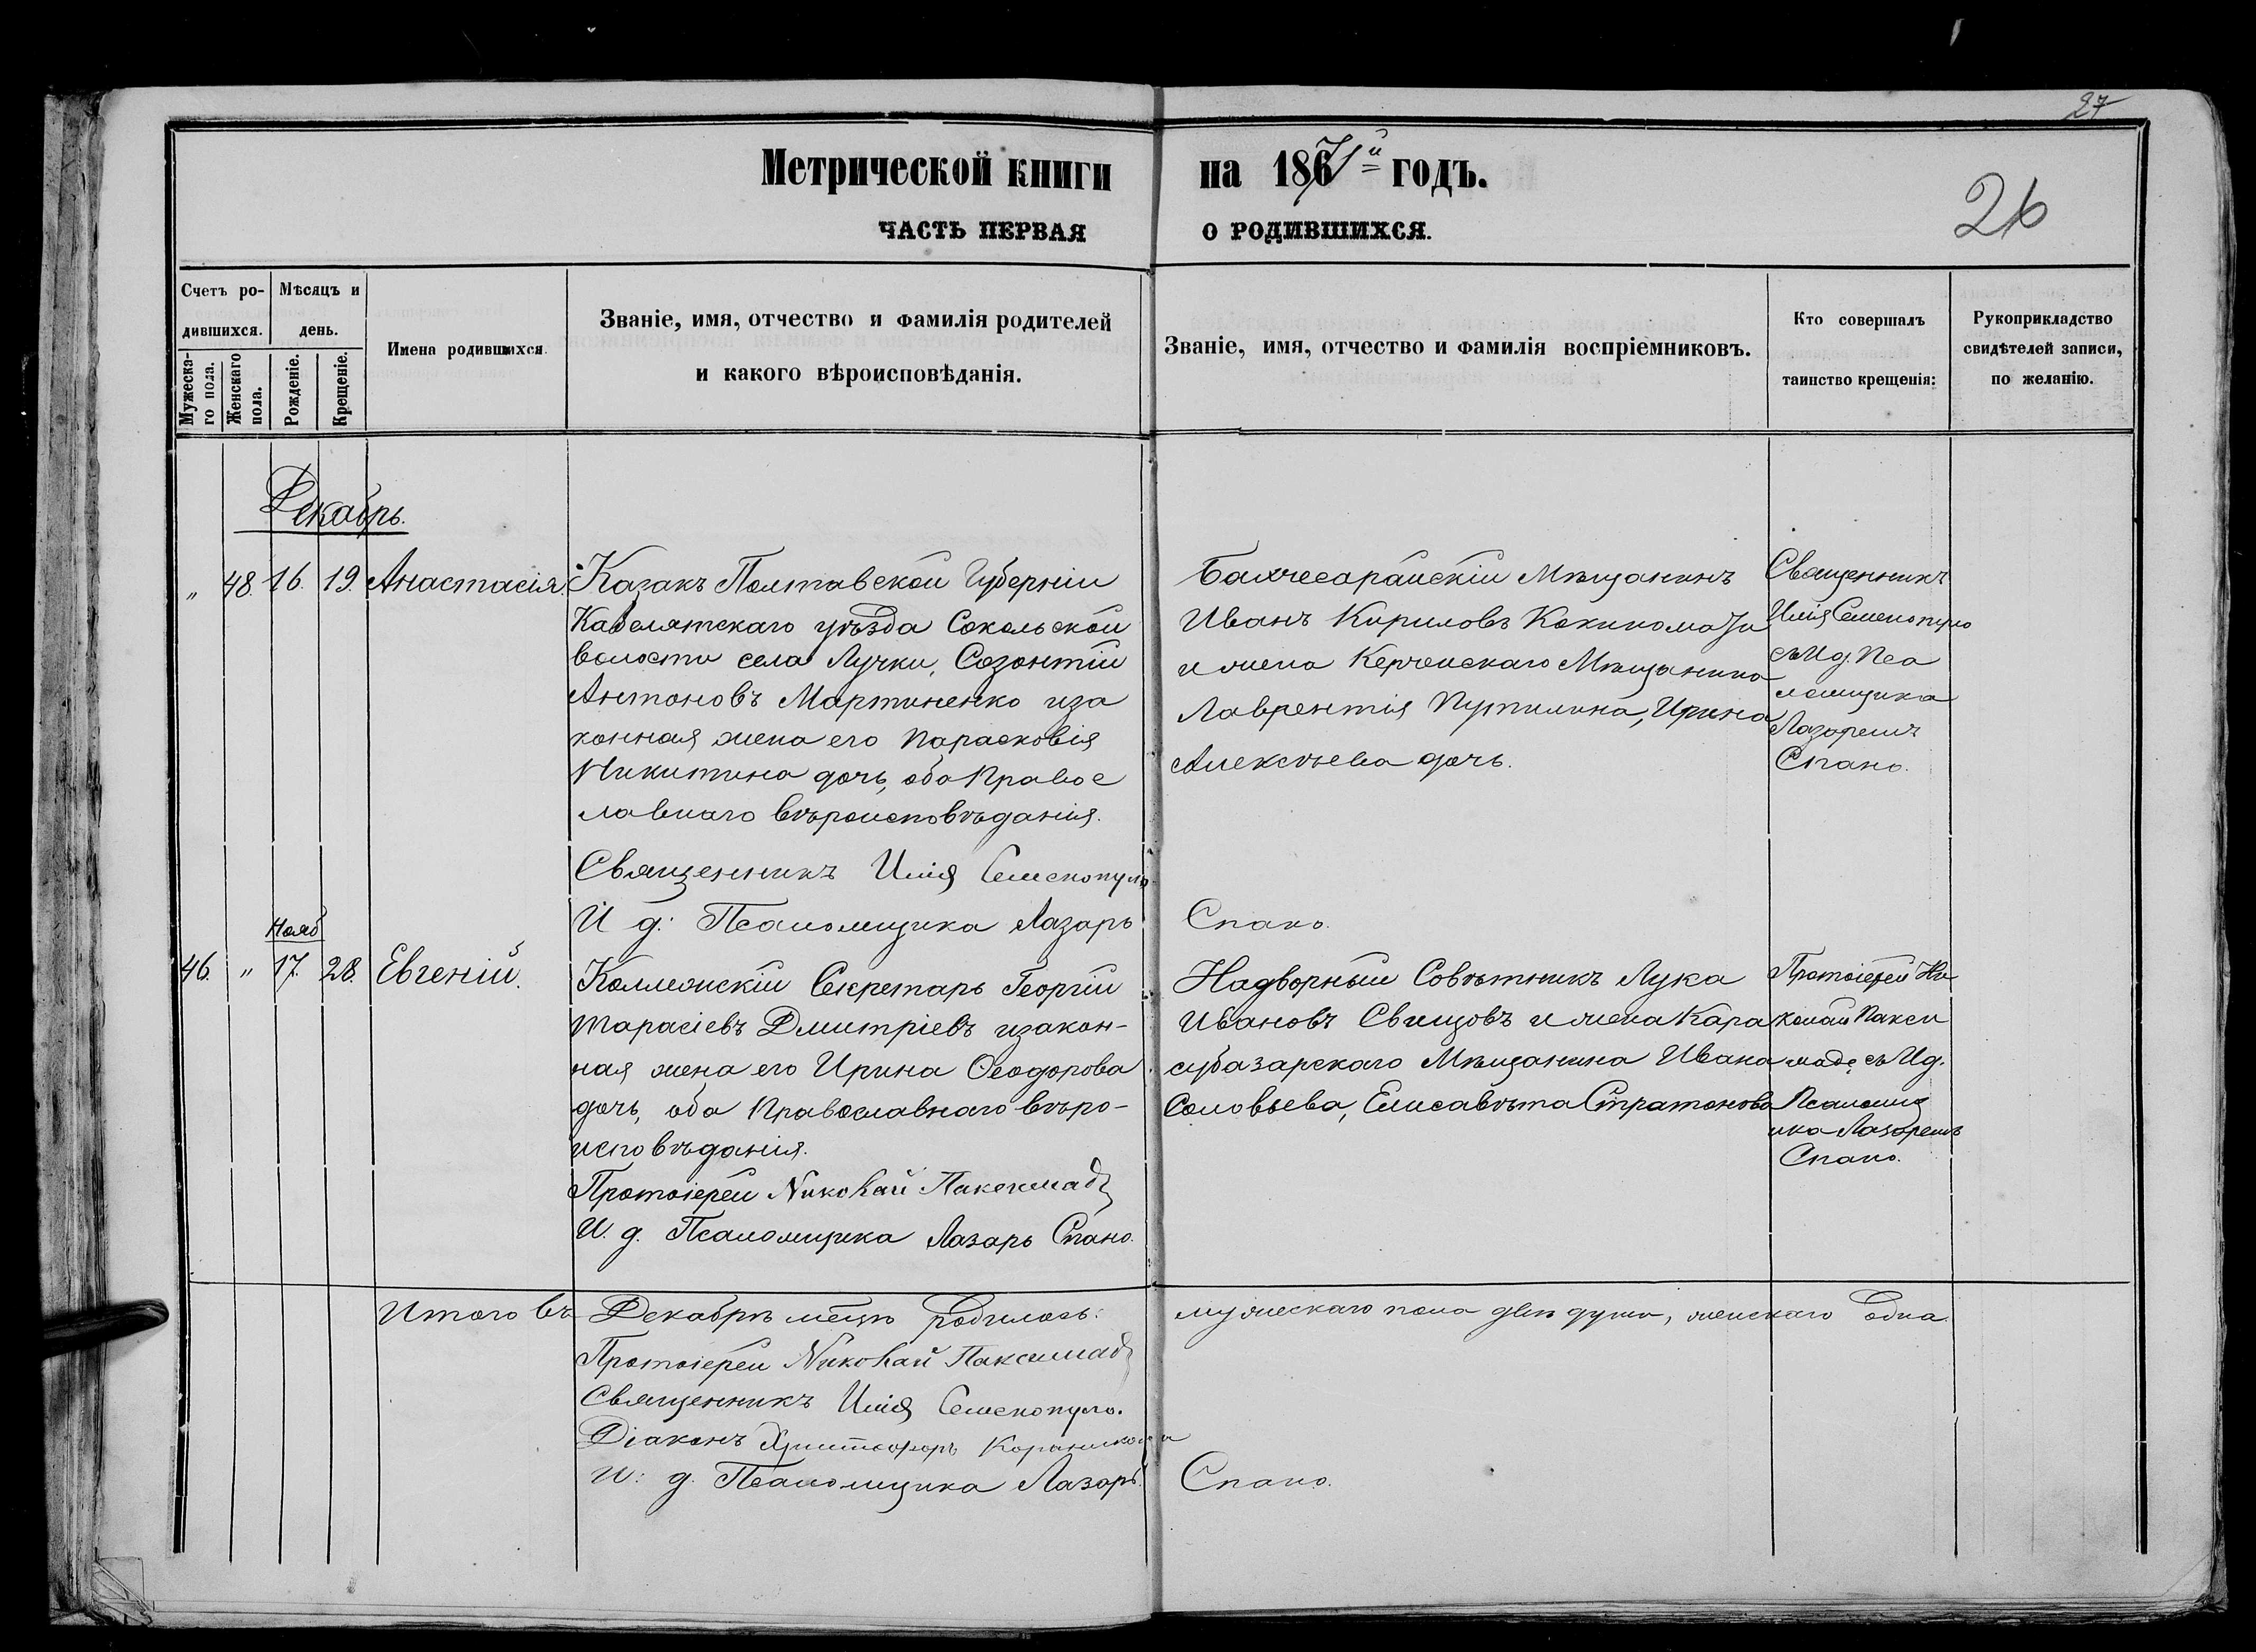 27
Метрической книги на 1871й годъ.
26
ЧАСТЬ ПЕРВАЯ О РОДИВШИХСЯ.
Счетъ родившихся.
Мужескаго пола.
Женскаго пола.
Мѣсяцъ и день.
Рожденіе.
Крещеніе.
Имена родившихся.
Званіе, имя, отчество и фамилія родителей
и какого вѣроисповѣданія.
Званіе, имя, отчество и фамилія воспріемниковъ.
Кто совершалъ
таинство крещенія:
Рукоприкладство
свидѣтелей записи,
по желанію.
Декабрь.
" 48. 16. 19. Анастасія.
Казакъ Полтавской Губерніи
Кабелятскаго уѣзда Сокольской
волости села Лучки, Созонтій
Антоновъ Мартиненко и за
конная жена его Парасковія
Никитина дочь, оба Правос
лавнаго вѣроисповѣданія.
Священникъ Илія Семенопуло
И д: Псаломщика Лазарь Спано.
Бахчесарайскій Мѣщанинъ
Иванъ Кириловъ
и жена Керченскаго Мѣщанина
Лаврентія Путилина, Ирина
Алексѣева дочь.
Священникъ
Илія Семенопуло
съ И.д. Пса
ломщика
Лазаремъ
Спано.
Нояб
46. " 17. 28. Евгеній.
Коллежскій Секретарь Георгій
Тарасіевъ Дмитріевъ и закон-
ная жена его Ирина Ѳеодорова
дочь, оба Православнаго вѣро-
исповѣданія.
Протоіерей Николай Паксимадъ
И. д. Псаломщика Лазарь Спано.
Надворный Совѣтникъ Лука
Ивановъ Свищовъ и жена Кара
субазарскаго Мѣщанина Ивана
Соловьева, Елисавѣта Стратонова
Протоіерей Ни
колай Пакси
мадъ съ И.д.
Псаломщ
ика Лазаремъ
Спано.
Итого въ Декабрѣ мѣсцѣ родилось: мужескаго пола двѣ души, женскаго одна.
Протоіерей Николай Паксимадъ
Священникъ Илія Семенопуло.
Діаконъ Христофоръ
И: д. Псаломщика Лазарь Спано.